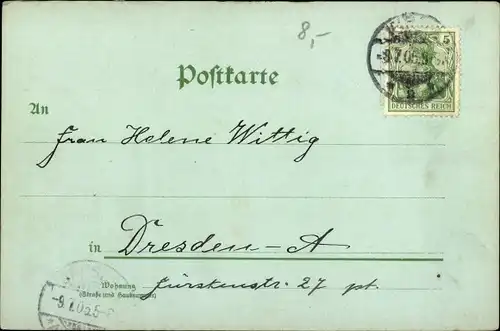 8,-
5
Postkarte
DEUTSCHES REICH
An
Frau Helene Wittig
in Dresden-A
Wohnung
(Straße und Hausnummer)
Fürstenstr. 27 pt.